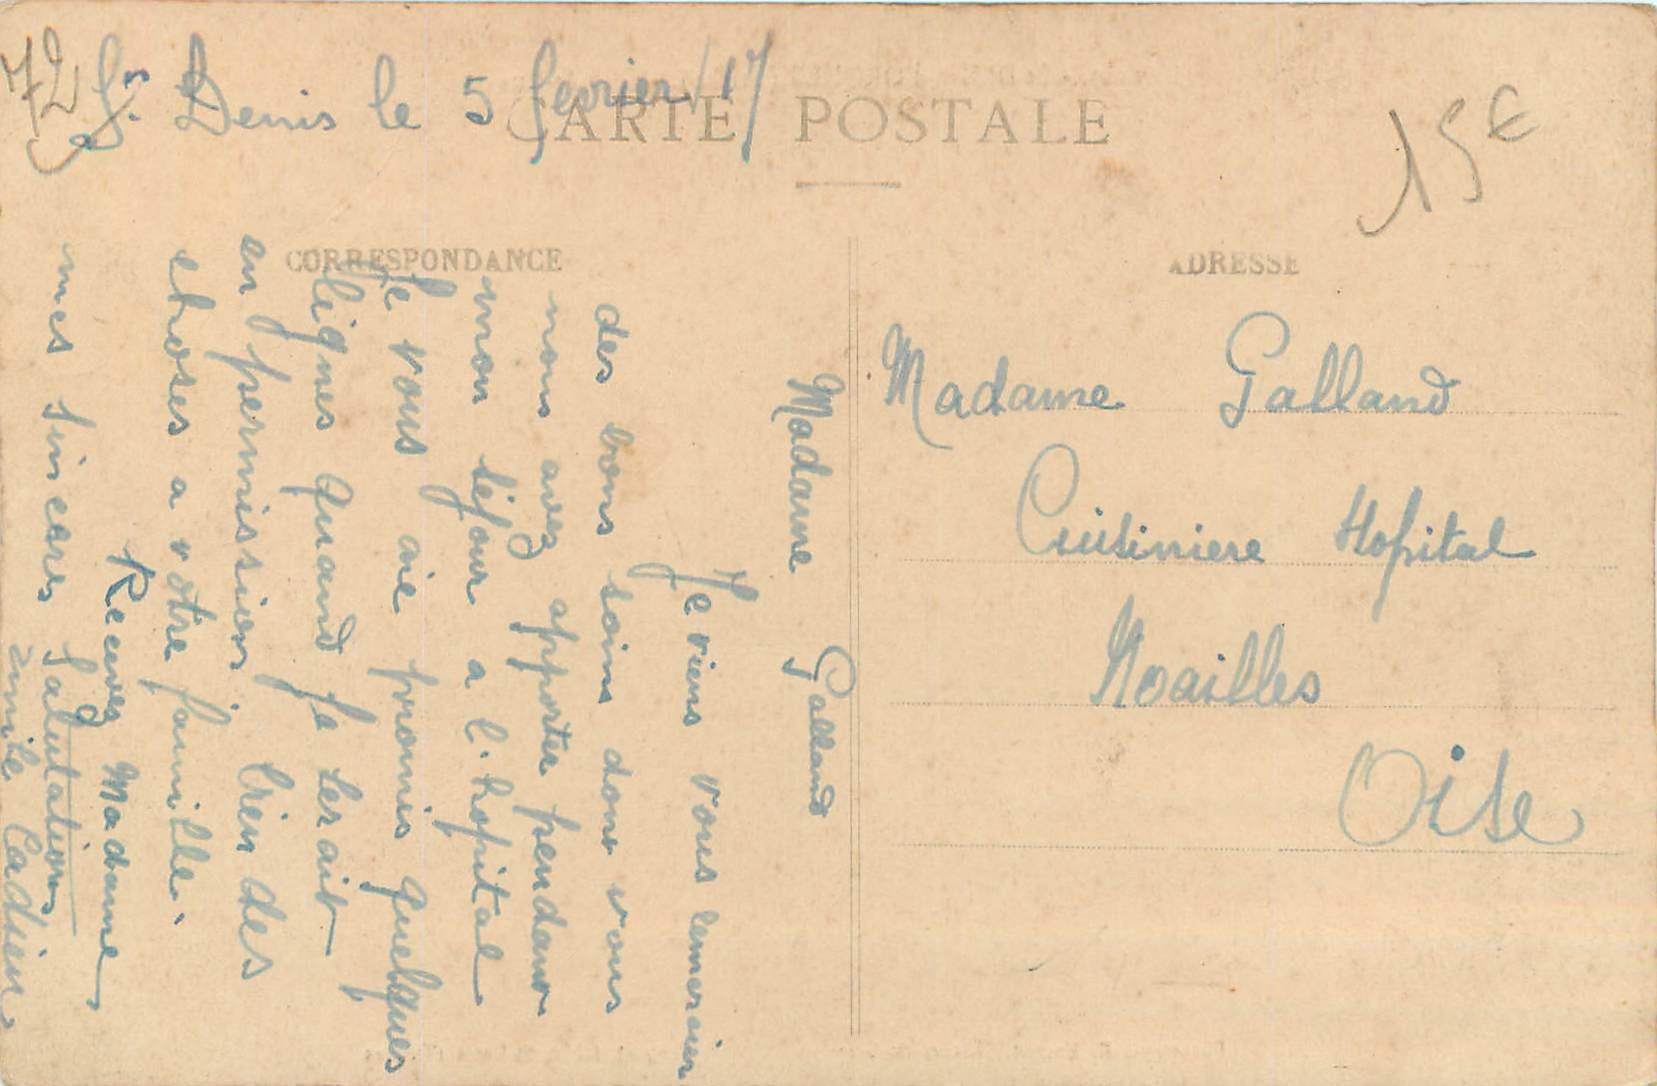 72
St Denis le 5 fevrier/17
CARTE POSTALE
15€
CORRESPONDANCE
ADRESSE
Madame Galland
Je viens vous remercier
des bons soins dont vous
nous avez apporter pendant
mon séjour a l'hopital
Je vous aie promis quelques
lignes quand je serait
en permission bien des
choses a votre famille.
Recevez Madame
mes sinceres salutations
Emile Cadieu
Madame Galland
Cuisiniere Hopital
Noailles
Oise